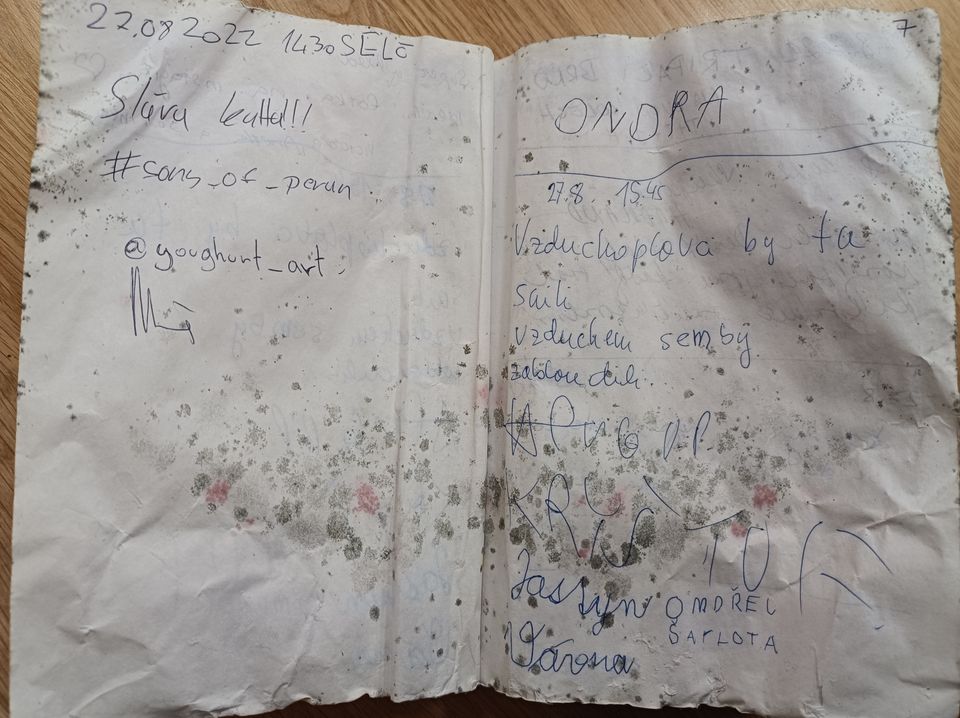 22.08 2022 1430 SĒLŌ
Sláva kutta!!!
#sons_of_perun
@youghurt_art.
7
ONDRA
27.8. 15:45
Vzduchoplová by ta
saili
vzduchem sem by
KRYŠTOF
Jassyn ONDŘEJ
ŠARLOTA
Várona